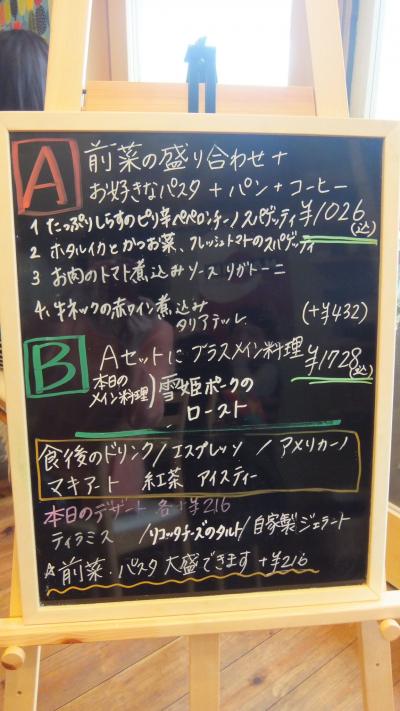 A 前菜の盛り合わせ+
お好きなパスタ+パン+コーヒー
1 たっぷりしらすのピリ辛ペペロンチーノスパゲッティ ¥1026(込)
2 ホタルイカとかつお菜、フレッシュトマトのスパゲッティ
3 お肉のトマト煮込みソースリガトーニ
4. 牛ネックの赤ワイン煮込み
タリアテッレ (+¥432)
B Aセットにプラスメイン料理 ¥1728(込)
本日の
メイン料理) 雪姫ポークの
ロースト
食後のドリンク/エスプレッソ / アメリカーノ
マキアート 紅茶 アイスティー
本日のデザート 各+¥216
ティラミス /リコッタチーズのタルト/自家製ジェラート
☆前菜・パスタ大盛できます +¥216